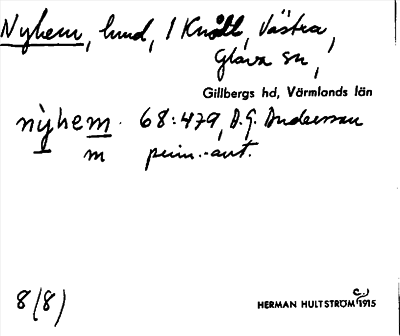 Nyhem, lund, 1 Knöll, Västra,
Glava sn,
Gillbergs hd, Värmlands län
nỳhem. 68:479, D.G. Andersson
m prim.-aut.
8(8)
HERMAN HULTSTRÖM (c.) 1915